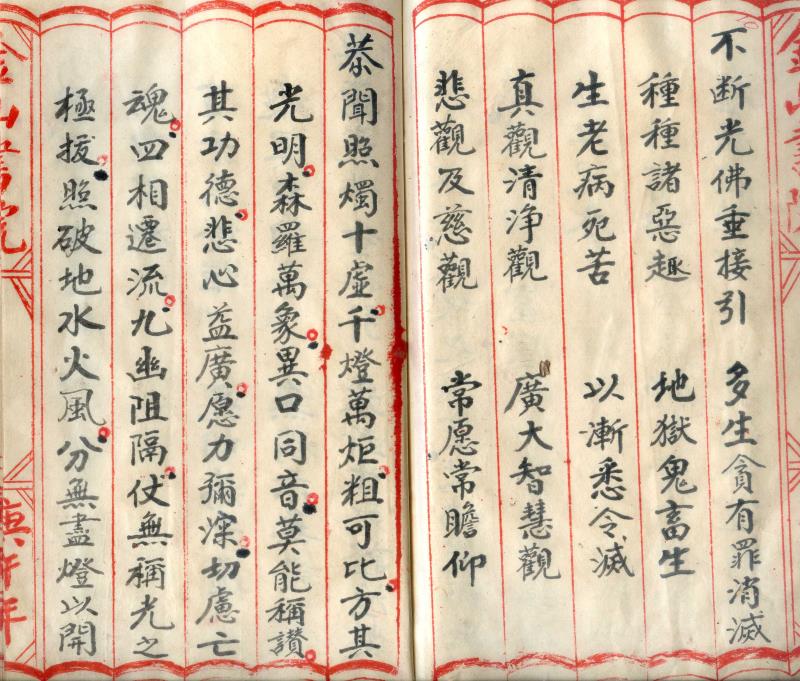 不断光佛垂接引 多生貪有罪消滅
種種諸惡趣 地獄鬼畜生
生老病死苦 以漸悉令滅
真觀清淨觀 廣大智慧觀
悲觀及慈觀 常愿常瞻仰
恭聞照燭十虛千燈萬炬粗可比方其
光明森羅萬象異口同音莫能稱讃
其功德悲心益廣愿力彌深切慮亡
魂四相遷流九幽阻隔仗無稱光之
極拔照破地水火風分無盡燈以開